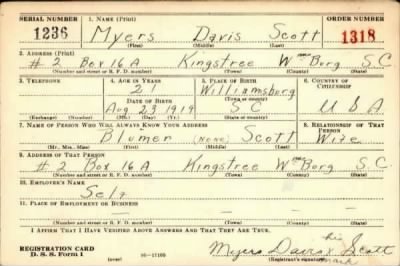 SERIAL NUMBER 1. NAME (Print) ORDER NUMBER
1236 Myers Davis Scott 1318
(First) (Middle) (Last)
2. ADDRESS (Print)
# 2 Box 16 A Kingstree Wmsborg S.C
(Number and street or R. F. D. number) (Town) (County) (State)
3. TELEPHONE 4. AGE IN YEARS 5. PLACE OF BIRTH 6. COUNTRY OF CITIZENSHIP
21 Williamsborg
DATE OF BIRTH (Town or county)
Aug 29 1919 S C U S A
(Exchange) (Number) (Mo.) (Day) (Yr.) (State or country)
7. NAME OF PERSON WHO WILL ALWAYS KNOW YOUR ADDRESS 8. RELATIONSHIP OF THAT PERSON
Blumer (None) Scott Wife
(Mr., Mrs., Miss) (First) (Middle) (Last)
9. ADDRESS OF THAT PERSON
# 2 Box 16 A Kingstree Wmsborg S C
(Number and street or R. F. D. number) (Town) (County) (State)
10. EMPLOYER'S NAME
Self
11. PLACE OF EMPLOYMENT OR BUSINESS
(Number and street or R. F. D. number) (Town) (County) (State)
I AFFIRM THAT I HAVE VERIFIED ABOVE ANSWERS AND THAT THEY ARE TRUE.
REGISTRATION CARD his
D. S. S. Form 1 (over) 16—17105 Myers Davis x Scott
(Registrant's signature) mark